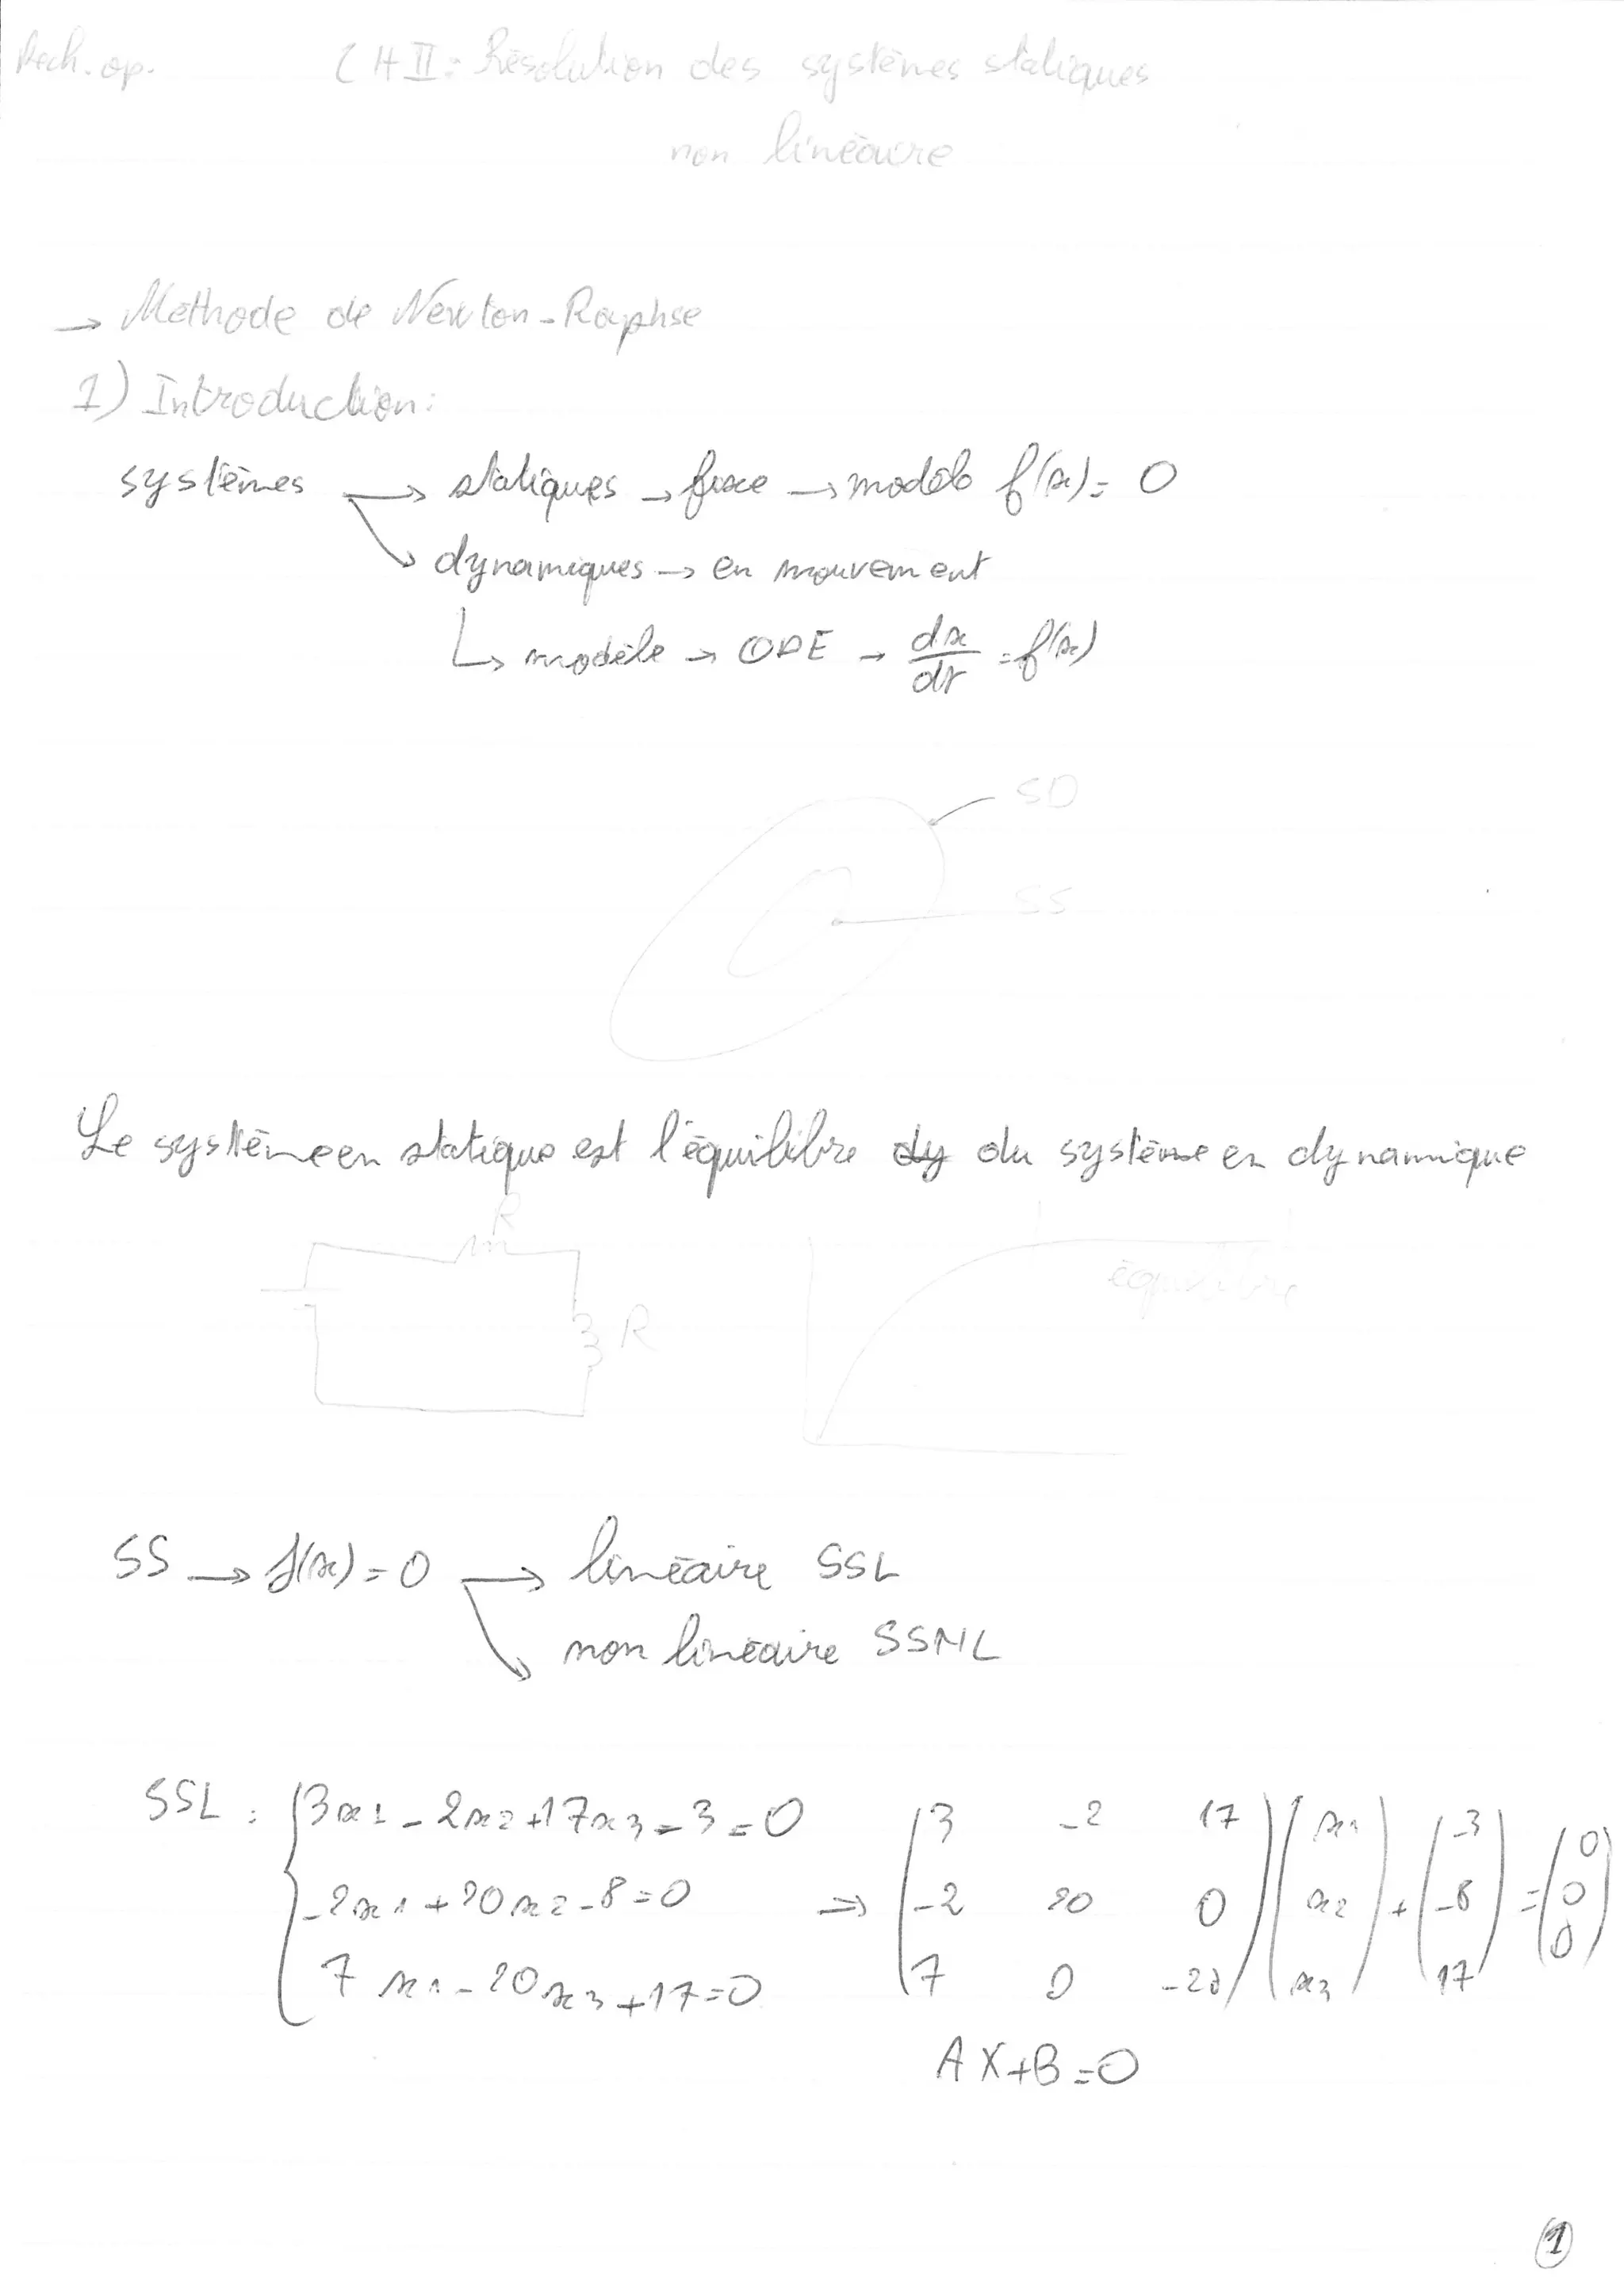 Rech. op. CH II: Résolution des systèmes statiques
non linéaire
→ Méthode de Newton-Raphse
1) Introduction:
systèmes → statiques → fixe → modèle f(x) = 0
→ dynamiques → en mouvement
↳ modèle → ODE → dx/dt = f(x)
SD
SS
Le système en statique est l'équilibre dy du système en dynamique
R
équilibre
R
SS → f(x) = 0 → linéaire SSL
non linéaire SSNL
SSL : { 3x1 - 2x2 + 17x3 - 3 = 0
-2x1 + 20x2 - 8 = 0
7x1 - 20x3 + 17 = 0
⇒ (3 -2 17) (x1) + (-3) = (0)
(-2 20 0) (x2) (-8) (0)
(7 0 -20) (x3) (17) (0)
AX + B = 0
1